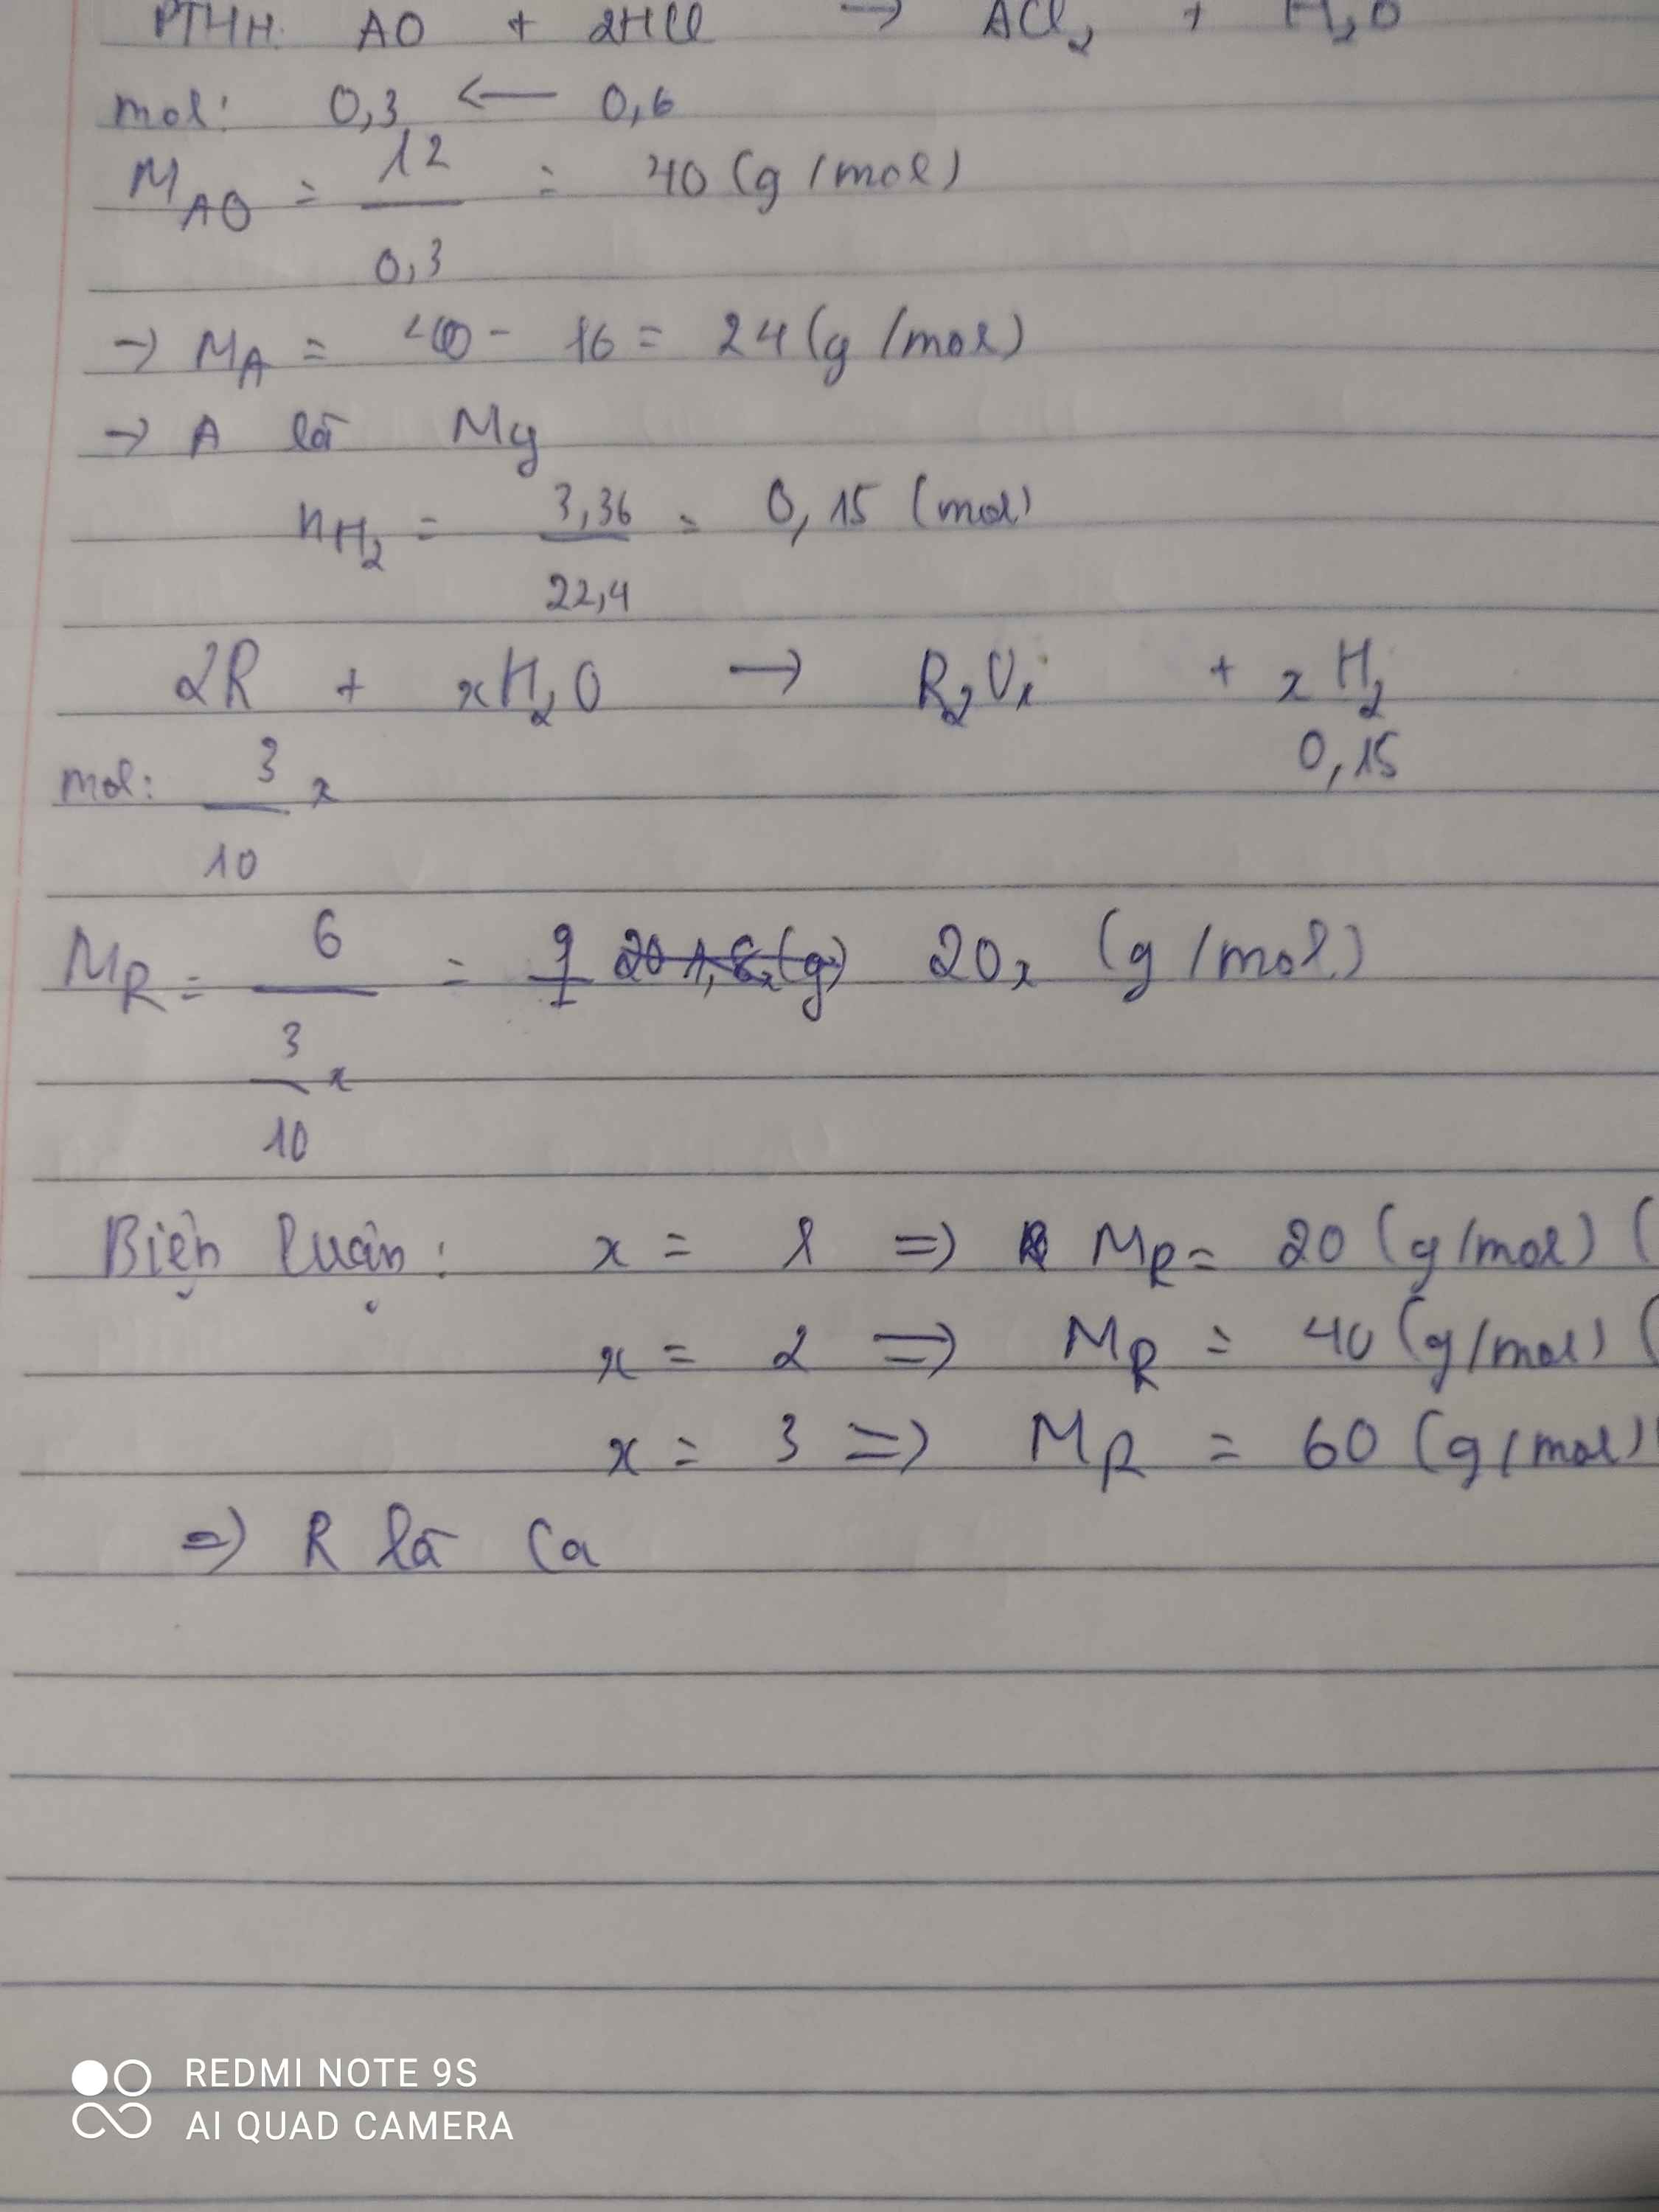 PTHH: AO + 2HCl → ACl₂ + H₂O
mol: 0,3 ← 0,6
M_AO = 12 / 0,3 = 40 (g/mol)
→ M_A = 40 - 16 = 24 (g/mol)
→ A là Mg
n_H₂ = 3,36 / 22,4 = 0,15 (mol)
2R + xH₂O → R₂Oₓ + xH₂
mol: 3/10 x 0,15
M_R = 6 / (3/10 x) = 20x (g/mol)
Biện luận: x = 1 ⇒ M_R = 20 (g/mol) (
x = 2 ⇒ M_R = 40 (g/mol) (
x = 3 ⇒ M_R = 60 (g/mol)
⇒ R là Ca
REDMI NOTE 9S
AI QUAD CAMERA